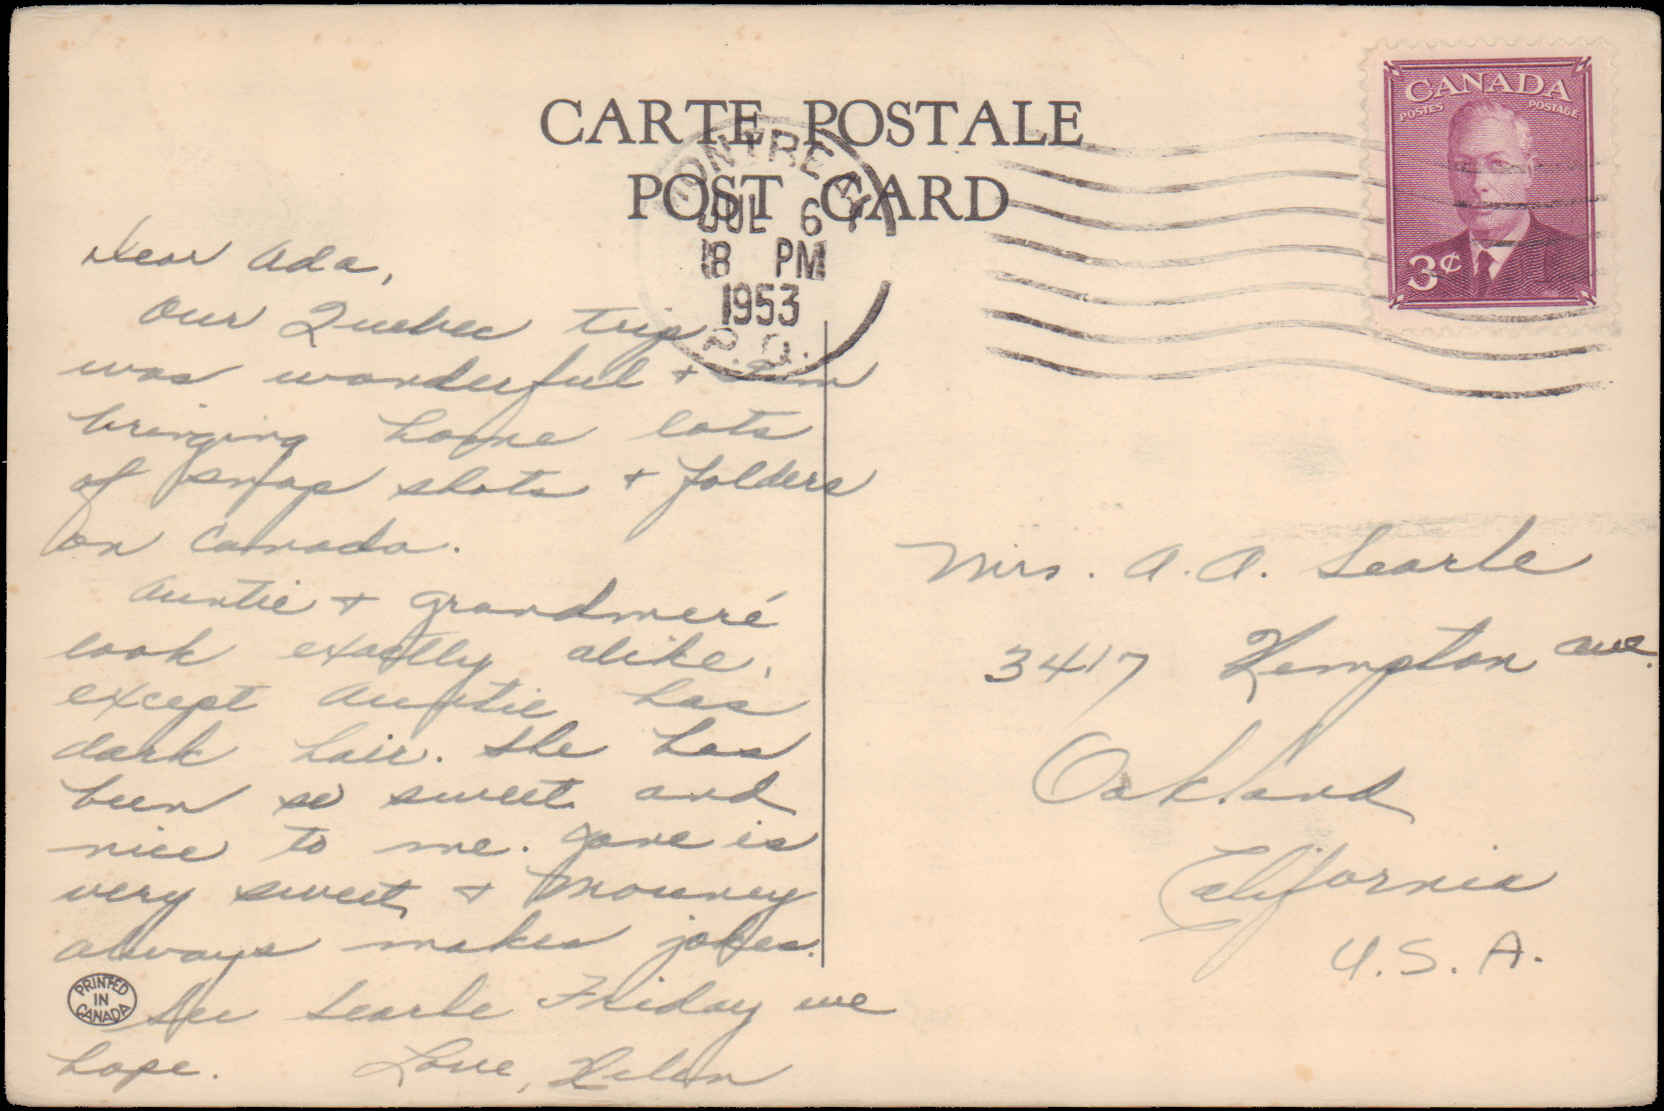 CARTE POSTALE
POST CARD
MONTREAL
JUL 6
8 PM
1953
P.Q.
CANADA
POSTES POSTAGE
3¢
Dear Ada,
Our Quebec trip
was wonderful + I'm
bringing home lots
of snap shots + folders
on Canada.
Auntie + Grandmeré
look exactly alike,
except Auntie has
dark hair. She has
been so sweet and
nice to me. Jane is
very sweet, +
always makes jokes.
See Searle Friday we
hope. Love, Helen
Mrs. A. A. Searle
3417 Kempton Ave.
Oakland
California
U.S.A.
PRINTED
IN
CANADA